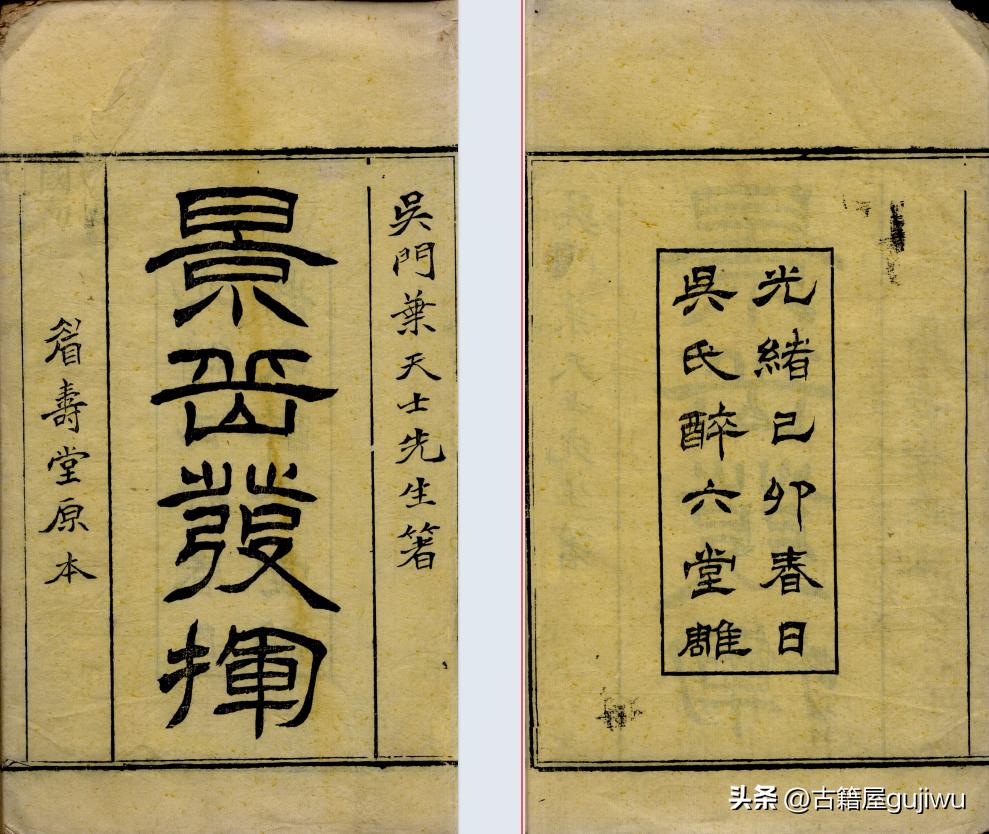 吳門葉天士先生箸
景岳發揮
眉壽堂原本
光緒己卯春日
吳氏醉六堂雕
头条 @古籍屋gujiwu